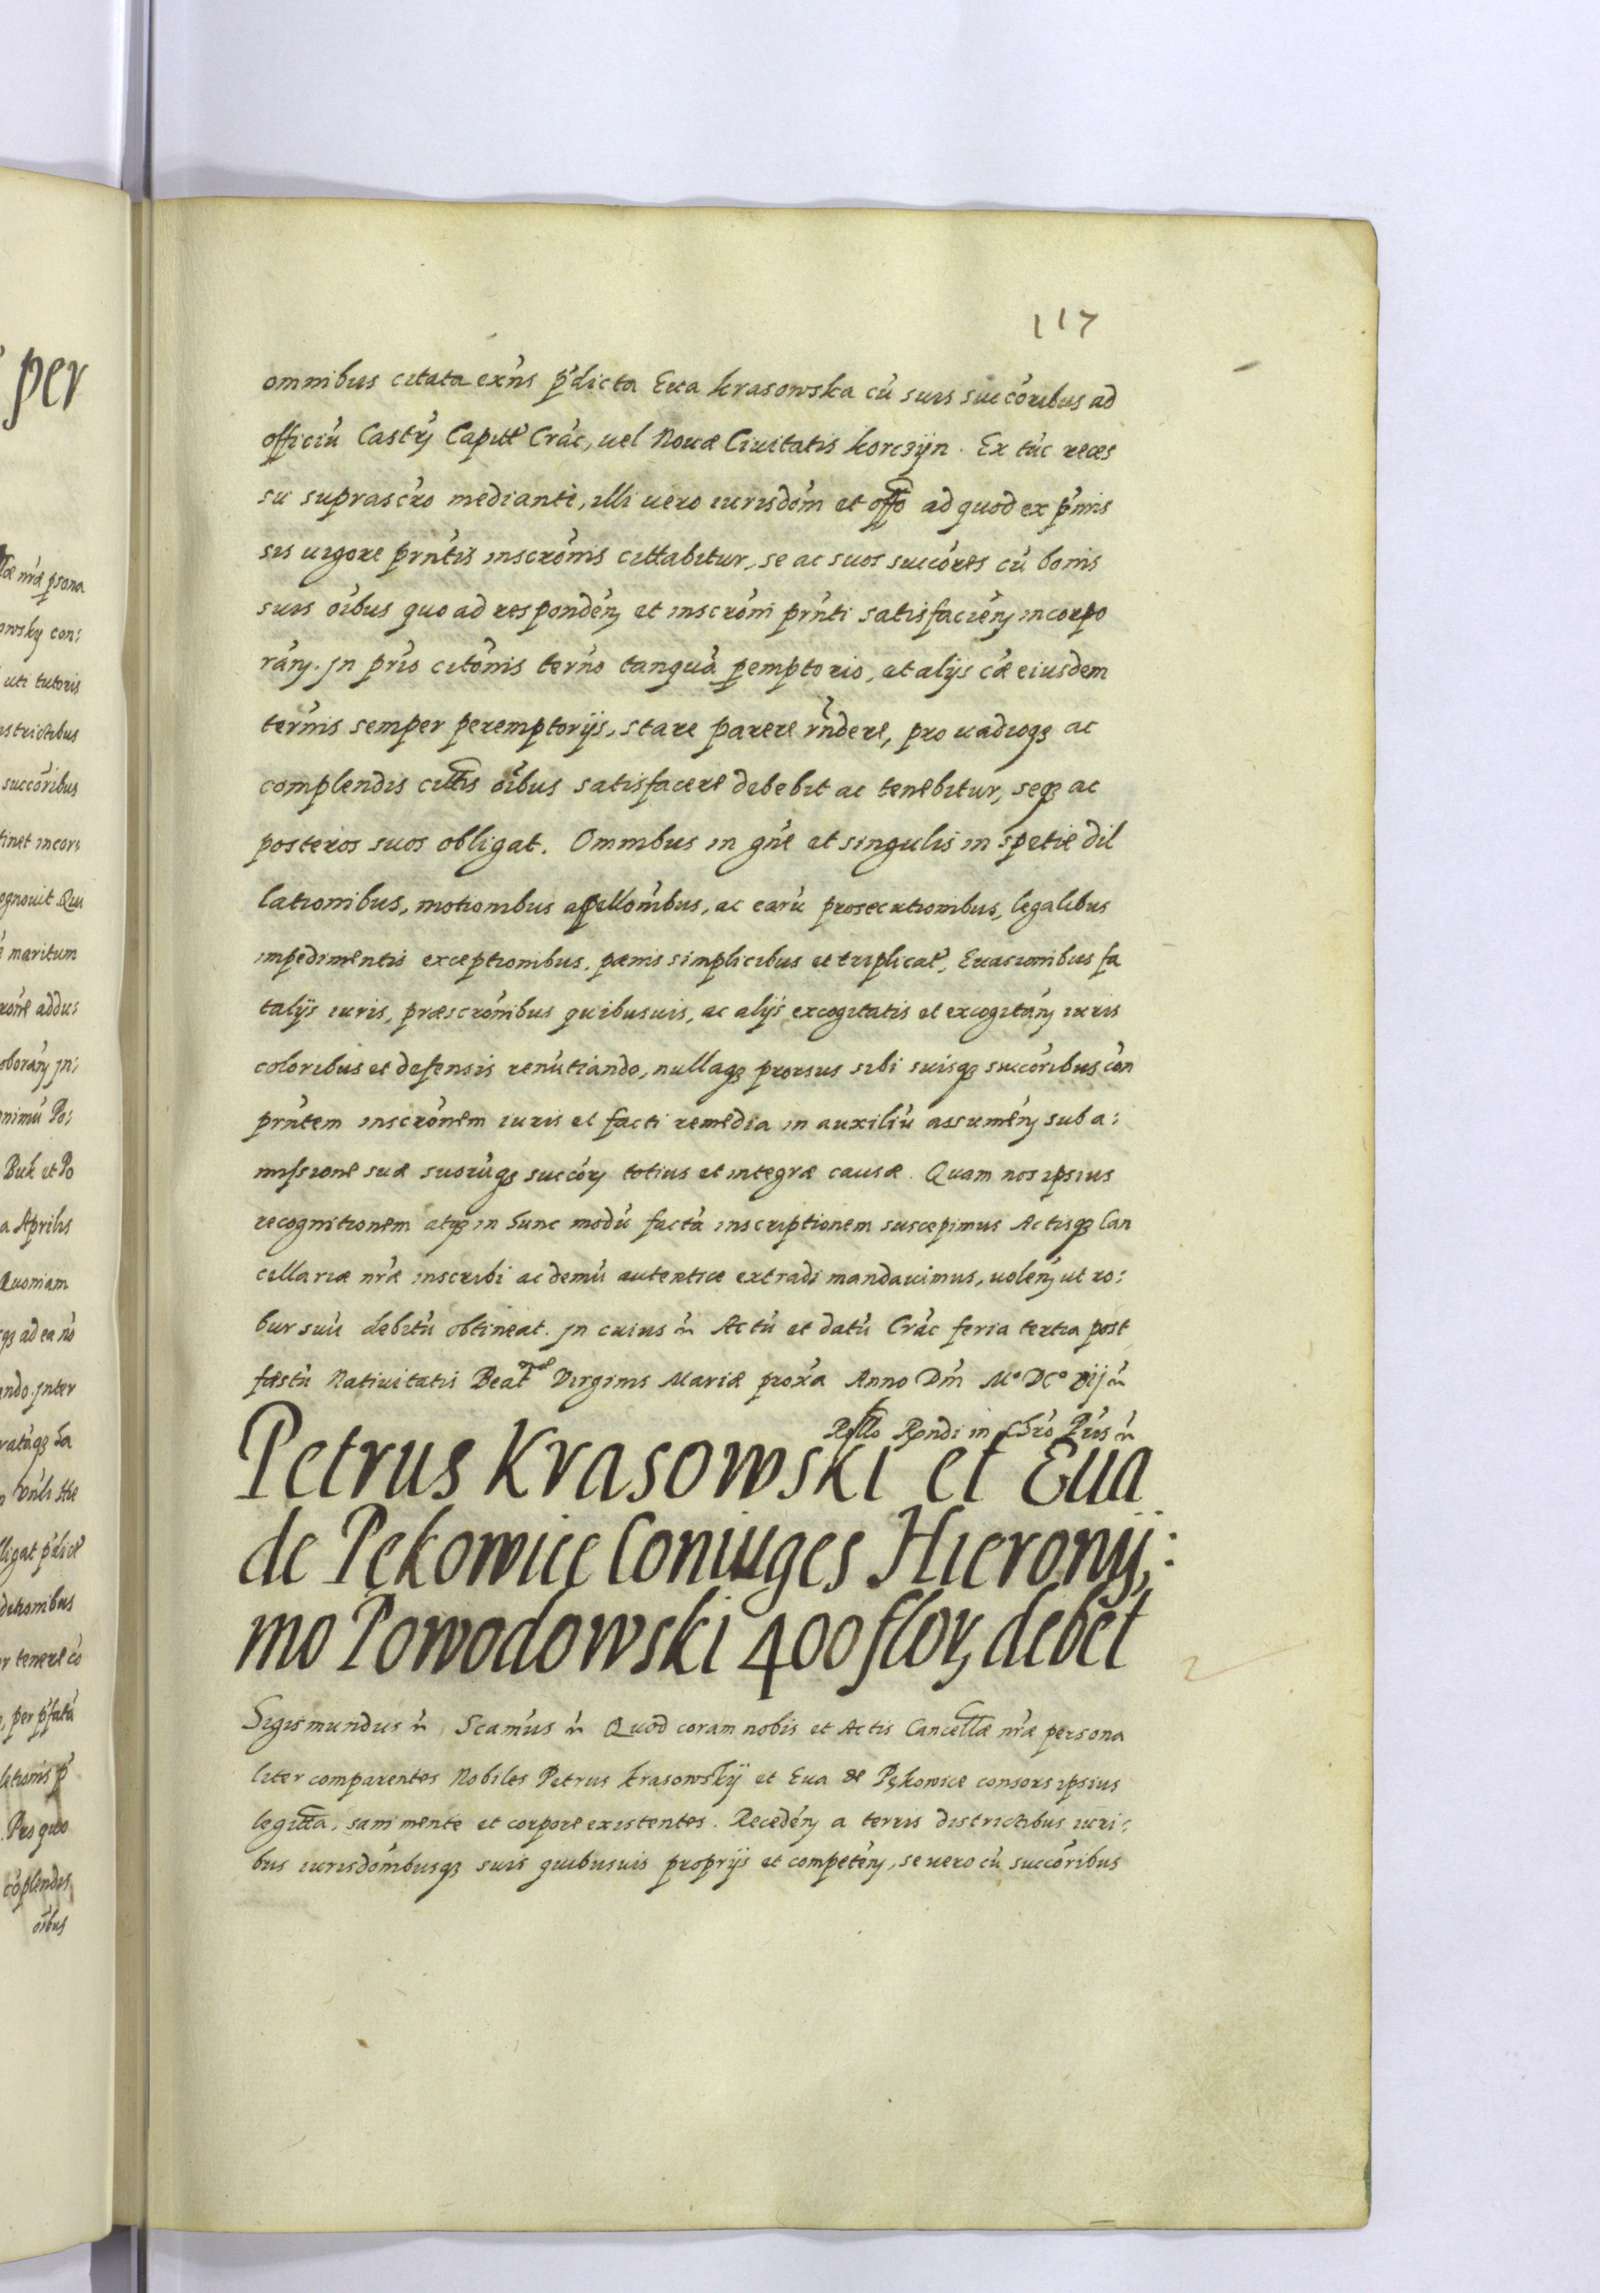 117
omnibus citata exńs p̓dicta Eua Krasowska cū suis succorībus ad
officiū Castrē Capitt̓ Crac̄, uel Nouæ Ciuitatis Korczÿn. Ex tūc reces
su suprascr̄o mediante, illi uero iurisdōm et offo ad quod ex p̄mis
sis uigore pr̄ntis inscrōnis cittabitur, se ac suos succōres cū bonis
suis oībus quo ad respondēn et inscrōni pr̄nti satisfaciēn incorpo
rān. Jn prīo citōnis terńo tanquā pemptorio, at alijs cǣ eiusdem
termīs semper peremptorijs, stare parere rn̄dere, pro uadioqȝ ac
complendis cittis oībus satisfacere debebit ac tenebitur, seqȝ ac
posteros suos obligat. Omnibus in gn̄e et singulis in spetie dil
lationibus, motionibus apellonībus, ac earū prosecutionibus, legalibus
impedimentis exceptionibus, pænis simplicibus et triplicat̓, Euasionibus fa
talijs iuris, præscrōnibus quibusuis, ac alijs excogitatis et excogitān iuris
coloribus et defensis renūtiando, nullaqȝ prorsus sibi suisqȝ succōribus cōn
prn̄tem inscrōnem iuris et facti remedia in auxiliū assumēn sub a:
missione suæ suorūqȝ succōrȝ totius et integræ causæ. Quam nos ipsius
recognitionem atqȝ in hunc modū factā inscriptionem suscepimus Actisqȝ Can
cellariæ nr̄æ inscribi ac demū autentice extradi mandauimus, uolēn ut ro:
bur suū debitū obtineat. Jn cuius ȓ Actū et datū Crac̄ feria tertia post
fæstū Natiuitatis Beat̓ma Virginis Mariæ proxā Anno Dn̄i M° DC° vij ȓ
Rndi in Chrō Pr̄is ȓ
Petrus Krasowski et Eua
de Pękowice Coniuges Hieronÿ:
mo Powodowski 400 florȝ debēt
Sigismundus ȓ, Scamūs ȓ Quod coram nobis et Actis Cancellæ nr̄æ persona
liter comparentes Nobiles Petrus Krasowskÿ et Eua de Pękowice consors ipsius
legitta, sani mente et corpore existentes. Recedēn a terris districtibus iuri:
bus iurisdōnibusqȝ suis quibusuis proprijs et competēn, se uero cū succōribus